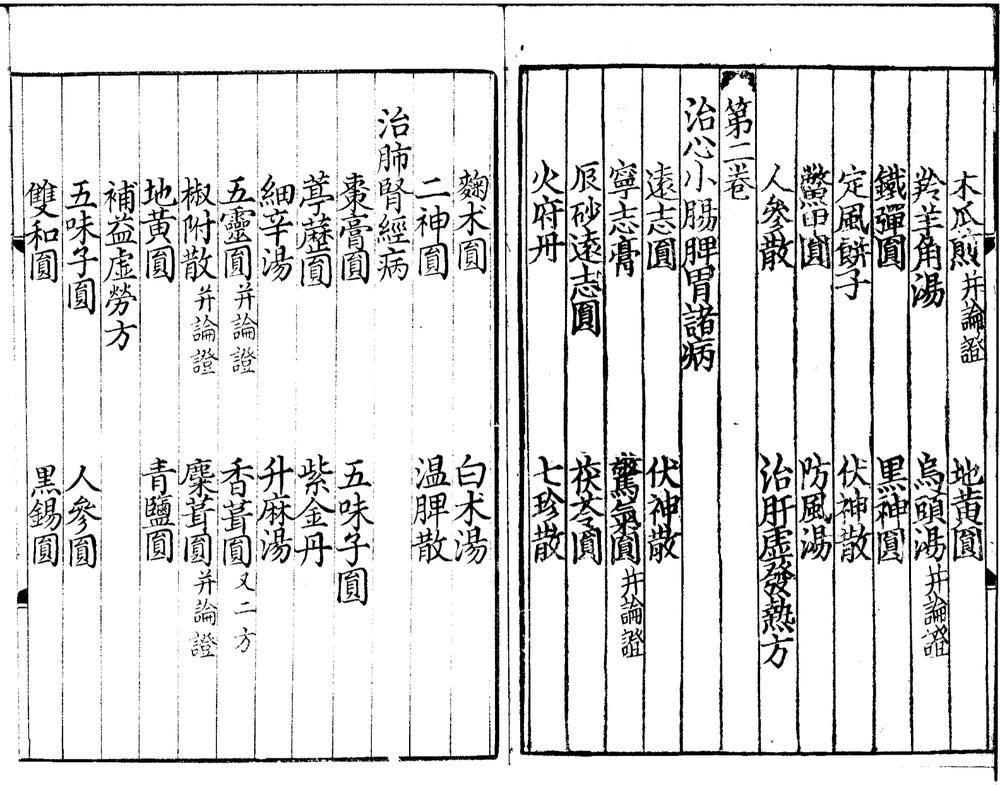 木瓜煎并論證 地黃圓
羚羊角湯 烏頭湯并論證
鐵彈圓 黑神圓
定風餅子 伏神散
圓 防風湯
人參散 治肝虛發熱方
第二卷
治心小腸脾胃諸病
遠志圓 伏神散
寧志膏 驚氣圓并論證
辰砂遠志圓 茯苓圓
火府丹 七珍散
麴朮圓 白朮湯
二神圓 溫脾散
治肺腎經病
棗膏圓 五味子圓
葶藶圓 紫金丹
細辛湯 升麻湯
五靈圓并論證 香葺圓又二方
椒附散并論證 麋茸圓并論證
地黃圓 青鹽圓
補益虛勞方
五味子圓 人參圓
雙和圓 黑錫圓